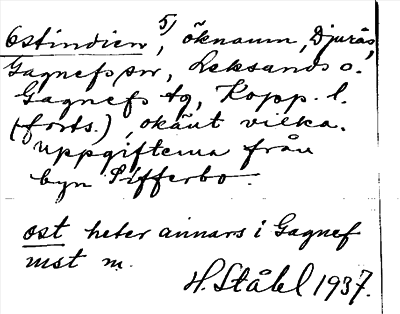 Ostindien 5), öknamn, Djurås,
Gagnefs sn, Leksands o.
Gagnefs tg, Kopp. l.
(forts.), okänt vilka.
Uppgifterna från
byn Sifferbo.
ost heter annars i Gagnef
mst m.
H. Ståhl 1937.